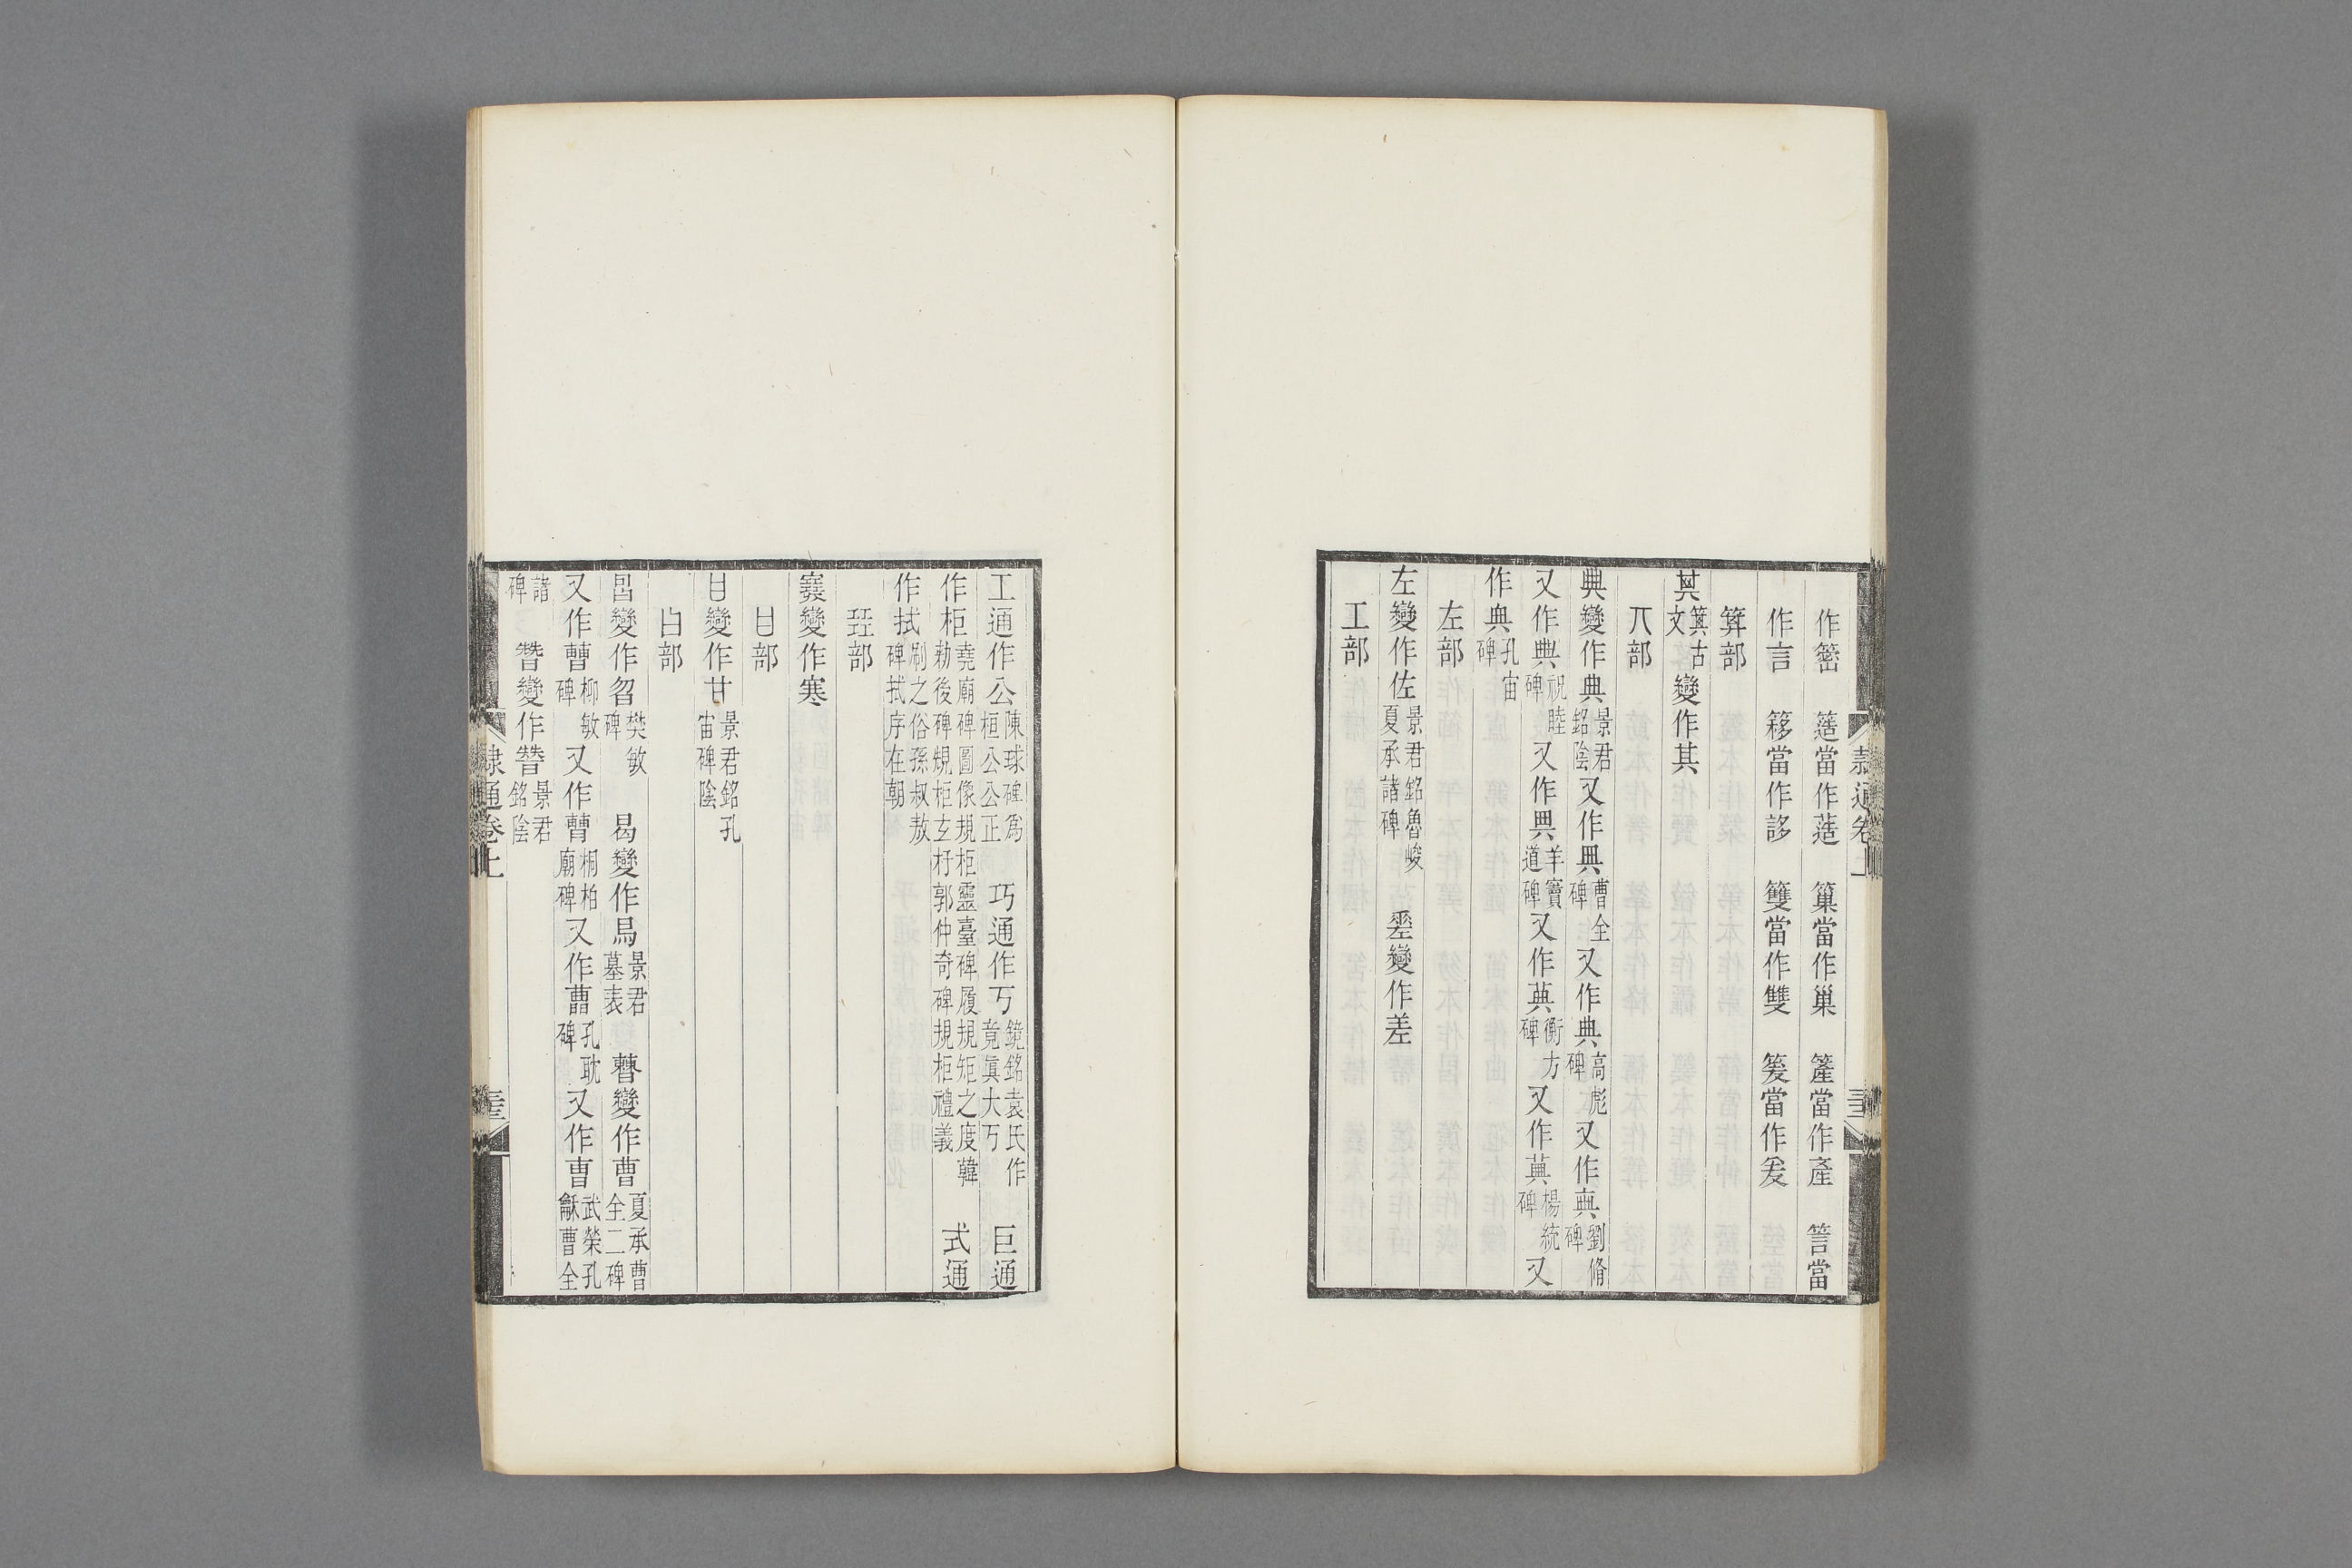 作簭 簉當作蓮 簟當作巢 簅當作產 䇾當
作言 簃當作謻 籆當作雙 䈠當作爰
箅部
𠀠箕古文變作其
丌部
典變作典景君銘陰又作𠔓曹全碑又作典高彪碑又作𠔓劉脩碑
又作典祝睦碑又作𠔓羊竇道碑又作䒿衡方碑又作䒿楊統碑又
作典孔宙碑
左部
左變作佐景君銘魯峻夏承諸碑 𢀩變作差
工部
工通作公陳球碑爲桓公公正 巧通作丂鏡銘袁氏作竟真大丂 巨通
作柜堯廟碑圖像規柜靈臺碑履規矩之度韓勑後碑規柜玄杅郭仲奇碑規柜禮義 式通
作拭剮之俗孫叔敖碑拭序在朝
㠭部
𡫳變作寒
甘部
甘變作甘景君銘孔宙碑陰
曰部
曶變作曶樊敏碑 曷變作曷景君墓表 𣍘變作曹夏承曹全二碑
又作𣍘柳敏碑又作𣍘桐柏廟碑又作曹孔耽碑又作曺武榮孔龢曹全
諸碑 朁變作朁景君銘陰
隸通卷上